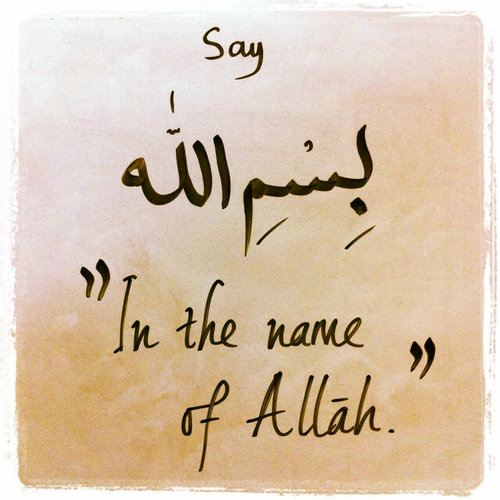 Say
بِسْمِ اللّٰه
"In the name
of Allāh."